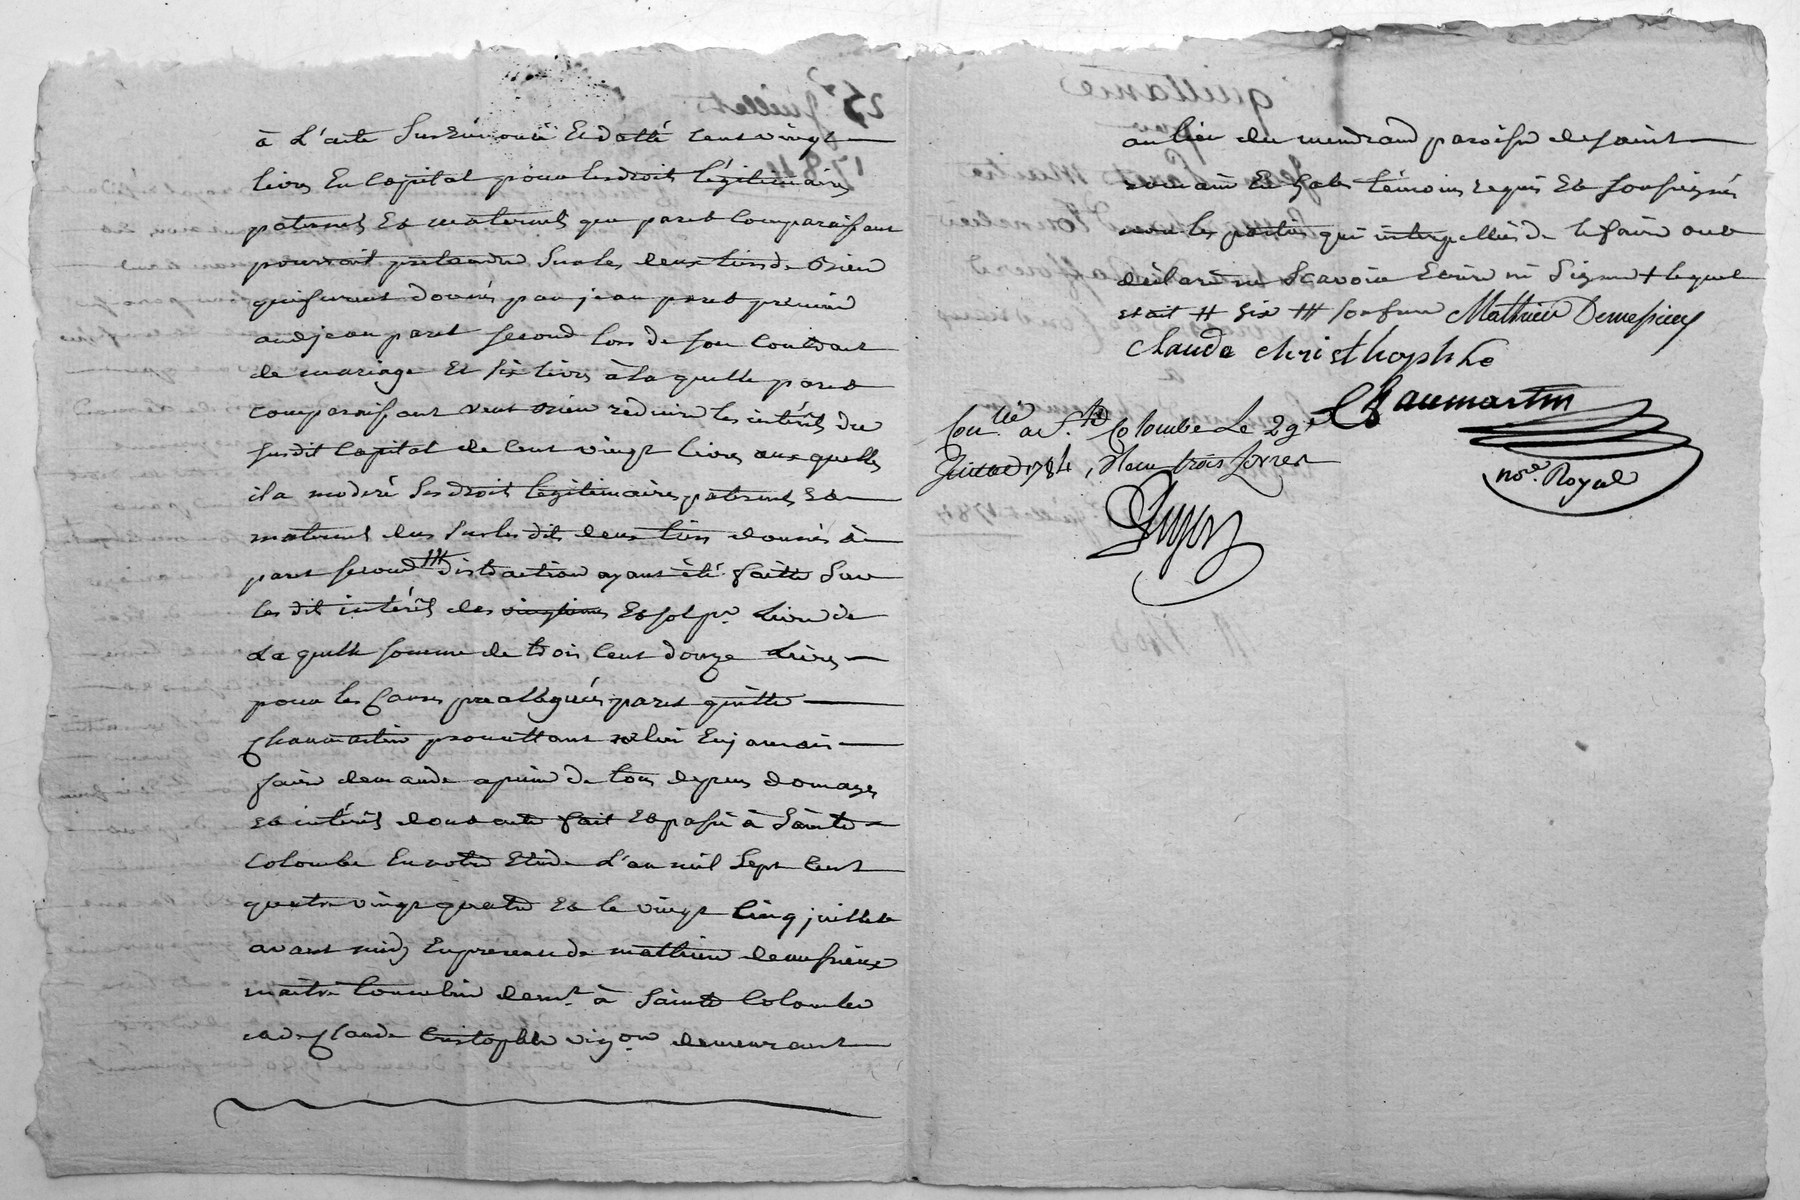 à L'acte Sus énoncé Et datté cent vingt
livres En Capital pour les droits légitimaires
paternels Et maternels que paret Comparaissant
pourroit pretendre Sur les deux tiers de Bien
qui furent donnés par jean paret premier
audjean paret second lors de son Contract
de mariage Et six livres à la quelle paret
comparaissant veut bien reduire les intérêts du
susdit Capital de Cent vingt livres aux quelles
il a moderé Ses droits legitimaires paternels Et
maternels dus Sur les dits deux tiers donnés à
paret second ttt distraction ayant été faitte Sur
les dit intérêts des vingtiemes Et sol pr. Livre de
La quelle somme de trois Cent douze Livres
pour les Causes preallèguées paret quitte
Chaumartin promettant ne lui En jamais
faire demande a peine de tous depens domages
Et intérêts dont acte fait Et passé à Sainte
Colombe En notre Etude L'an mil Sept Cent
quatre vingt quatre Et le vingt Cinq juillet
avant midy En presence de mathieu demessieux
maitre demt. à Sainte Colombe
et de Claude Cristophle vigon demeurant
au lieu du paroisse de saint
témoins requis Et soussignés
non les parties qui interpellés de le faire ont
déclaré ne Scavoir Ecrire ni Signer + lequel
etait tt Six ttt Mathieu Demessieux
Claude christhophle
Chaumartin
nore. Royal
Con.lé a Ste. Colombe Le 29
Juillet 1784,
25 juillet
1784
quittance
pour